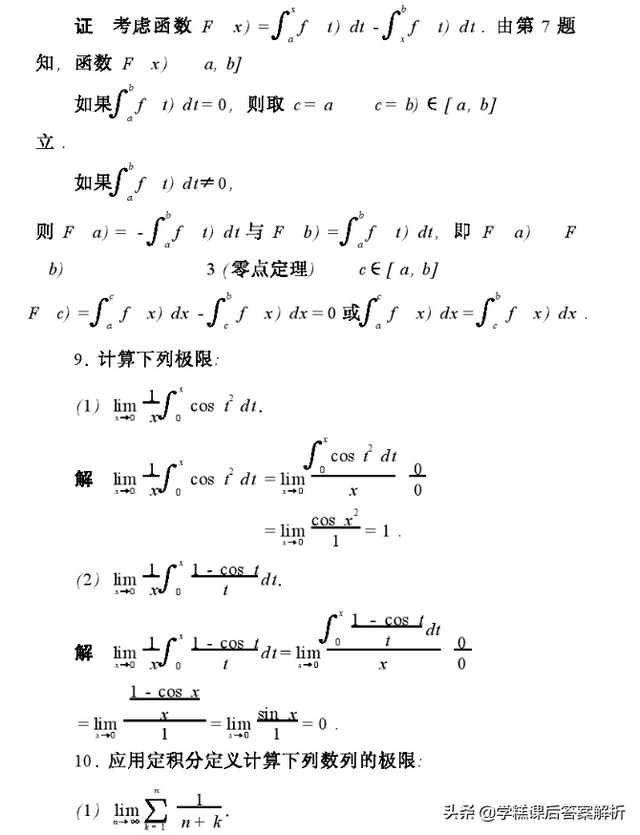 证 考虑函数 F x) = ∫_a^x f t) dt - ∫_x^b f t) dt . 由第 7 题
知, 函数 F x) a, b]
如果∫_a^b f t) dt = 0, 则取 c = a c = b) ∈ [ a, b]
立 .
如果∫_a^b f t) dt ≠ 0,
则 F a) = - ∫_a^b f t) dt 与 F b) = ∫_a^b f t) dt, 即 F a) F
b) 3 (零点定理) c ∈ [ a, b]
F c) = ∫_a^c f x) dx - ∫_c^b f x) dx = 0 或∫_a^c f x) dx = ∫_c^b f x) dx .
9. 计算下列极限:
(1) lim_{x→0} 1/x ∫_0^x cos t² dt.
解 lim_{x→0} 1/x ∫_0^x cos t² dt = lim_{x→0} (∫_0^x cos t² dt)/x 0/0
= lim_{x→0} (cos x²)/1 = 1 .
(2) lim_{x→0} 1/x ∫_0^x (1 - cos t)/t dt.
解 lim_{x→0} 1/x ∫_0^x (1 - cos t)/t dt = lim_{x→0} (∫_0^x (1 - cos t)/t dt)/x 0/0
= lim_{x→0} ((1 - cos x)/x)/1 = lim_{x→0} (sin x)/1 = 0 .
10. 应用定积分定义计算下列数列的极限:
(1) lim_{n→∞} ∑_{k=1}^n 1/(n + k).
头条 @学糕课后答案解析